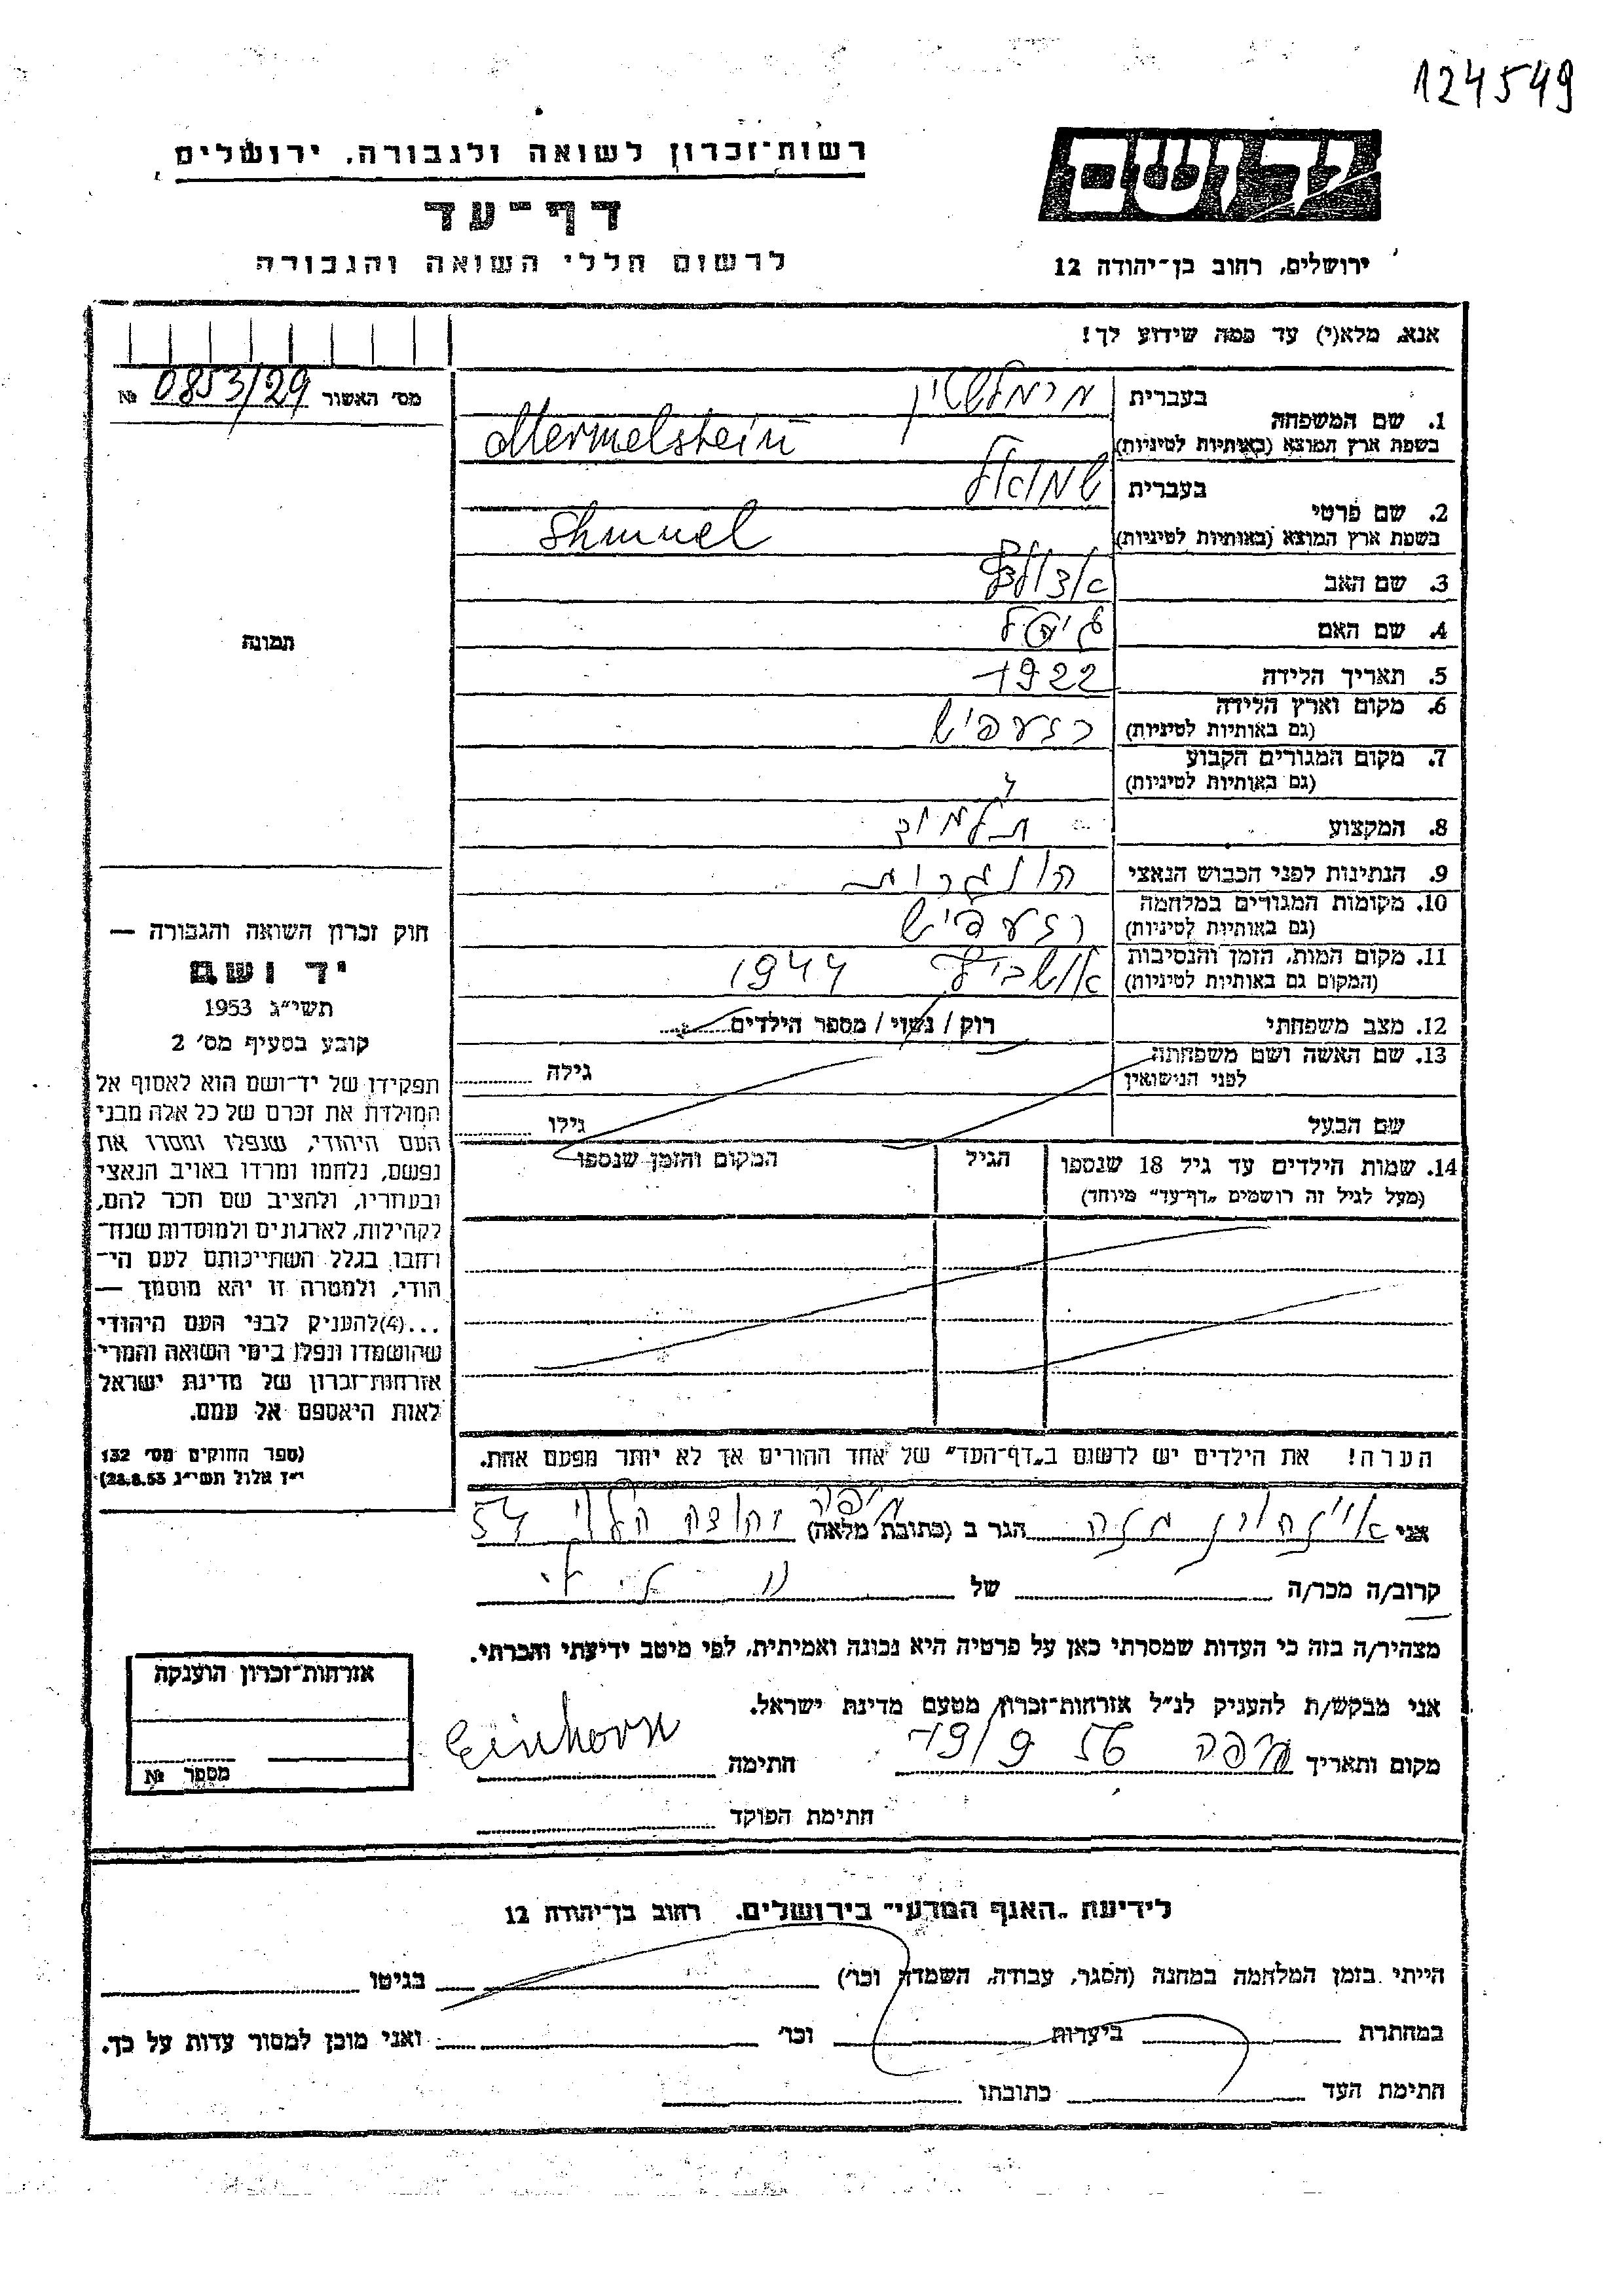 124549
יד ושם
ירושלים, רחוב בן־יהודה 12
רשות־זכרון לשואה ולגבורה, ירושלים
דף־עד
לרשום חללי השואה והגבורה
אנא, מלא(י) עד כמה שידוע לך!
מס' האשור 0853/29 №
תמונה
1. שם המשפחה
בעברית מרמלשטין
בשפת ארץ המוצא (באותיות לטיניות) Mermelstein
2. שם פרטי
בעברית שמואל
בשפת ארץ המוצא (באותיות לטיניות) Shmuel
3. שם האב אדולף
4. שם האם
5. תאריך הלידה 1922
6. מקום וארץ הלידה
(גם באותיות לטיניות)
7. מקום המגורים הקבוע
(גם באותיות לטיניות)
8. המקצוע תלמיד
9. הנתינות לפני הכבוש הנאצי
10. מקומות המגורים במלחמה
(גם באותיות לטיניות)
11. מקום המות, הזמן והנסיבות
(המקום גם באותיות לטיניות) 1944
12. מצב משפחתי רוק / נשוי / מספר הילדים
13. שם האשה ושם משפחתה
לפני הנישואין גילה
שם הבעל גילו
14. שמות הילדים עד גיל 18 שנספו הגיל המקום והזמן שנספו
(מעל לגיל זה רושמים „דף־עד" מיוחד)
הערה! את הילדים יש לרשום ב„דף־העד" של אחד ההורים אך לא יותר מפעם אחת.
חוק זכרון השואה והגבורה —
יד ושם
תשי"ג 1953
קובע בסעיף מס' 2
תפקידו של יד־ושם הוא לאסוף אל
המולדת את זכרם של כל אלה מבני
העם היהודי, שנפלו ומסרו את
נפשם, נלחמו ומרדו באויב הנאצי
ובעוזריו, ולהציב שם וזכר להם,
לקהילות, לארגונים ולמוסדות שנח־
רבו בגלל השתייכותם לעם הי־
הודי, ולמטרה זו יהא מוסמך —
...(4)להעניק לבני העם היהודי
שהושמדו ונפלו בימי השואה והמרי
אזרחות־זכרון של מדינת ישראל
לאות היאספם אל עמם.
(ספר החוקים מס' 132
י"ז אלול תשי"ג 28.8.53)
אני איינהורן הגר ב (כתובת מלאה) חיפה 54
קרוב/ה מכר/ה של
מצהיר/ה בזה כי העדות שמסרתי כאן על פרטיה היא נכונה ואמיתית, לפי מיטב ידיעתי והכרתי.
אני מבקש/ת להעניק לנ"ל אזרחות־זכרון מטעם מדינת ישראל.
מקום ותאריך חיפה 19/9 56 חתימה Einhorn
חתימת הפוקד
אזרחות־זכרון הוענקה
מספר №
לידיעת „האגף המדעי" בירושלים, רחוב בן־יהודה 12
הייתי בזמן המלחמה במחנה (הסגר, עבודה, השמדה וכו') בגיטו
במחתרת ביערות וכו' ואני מוכן למסור עדות על כך.
חתימת העד כתובתו